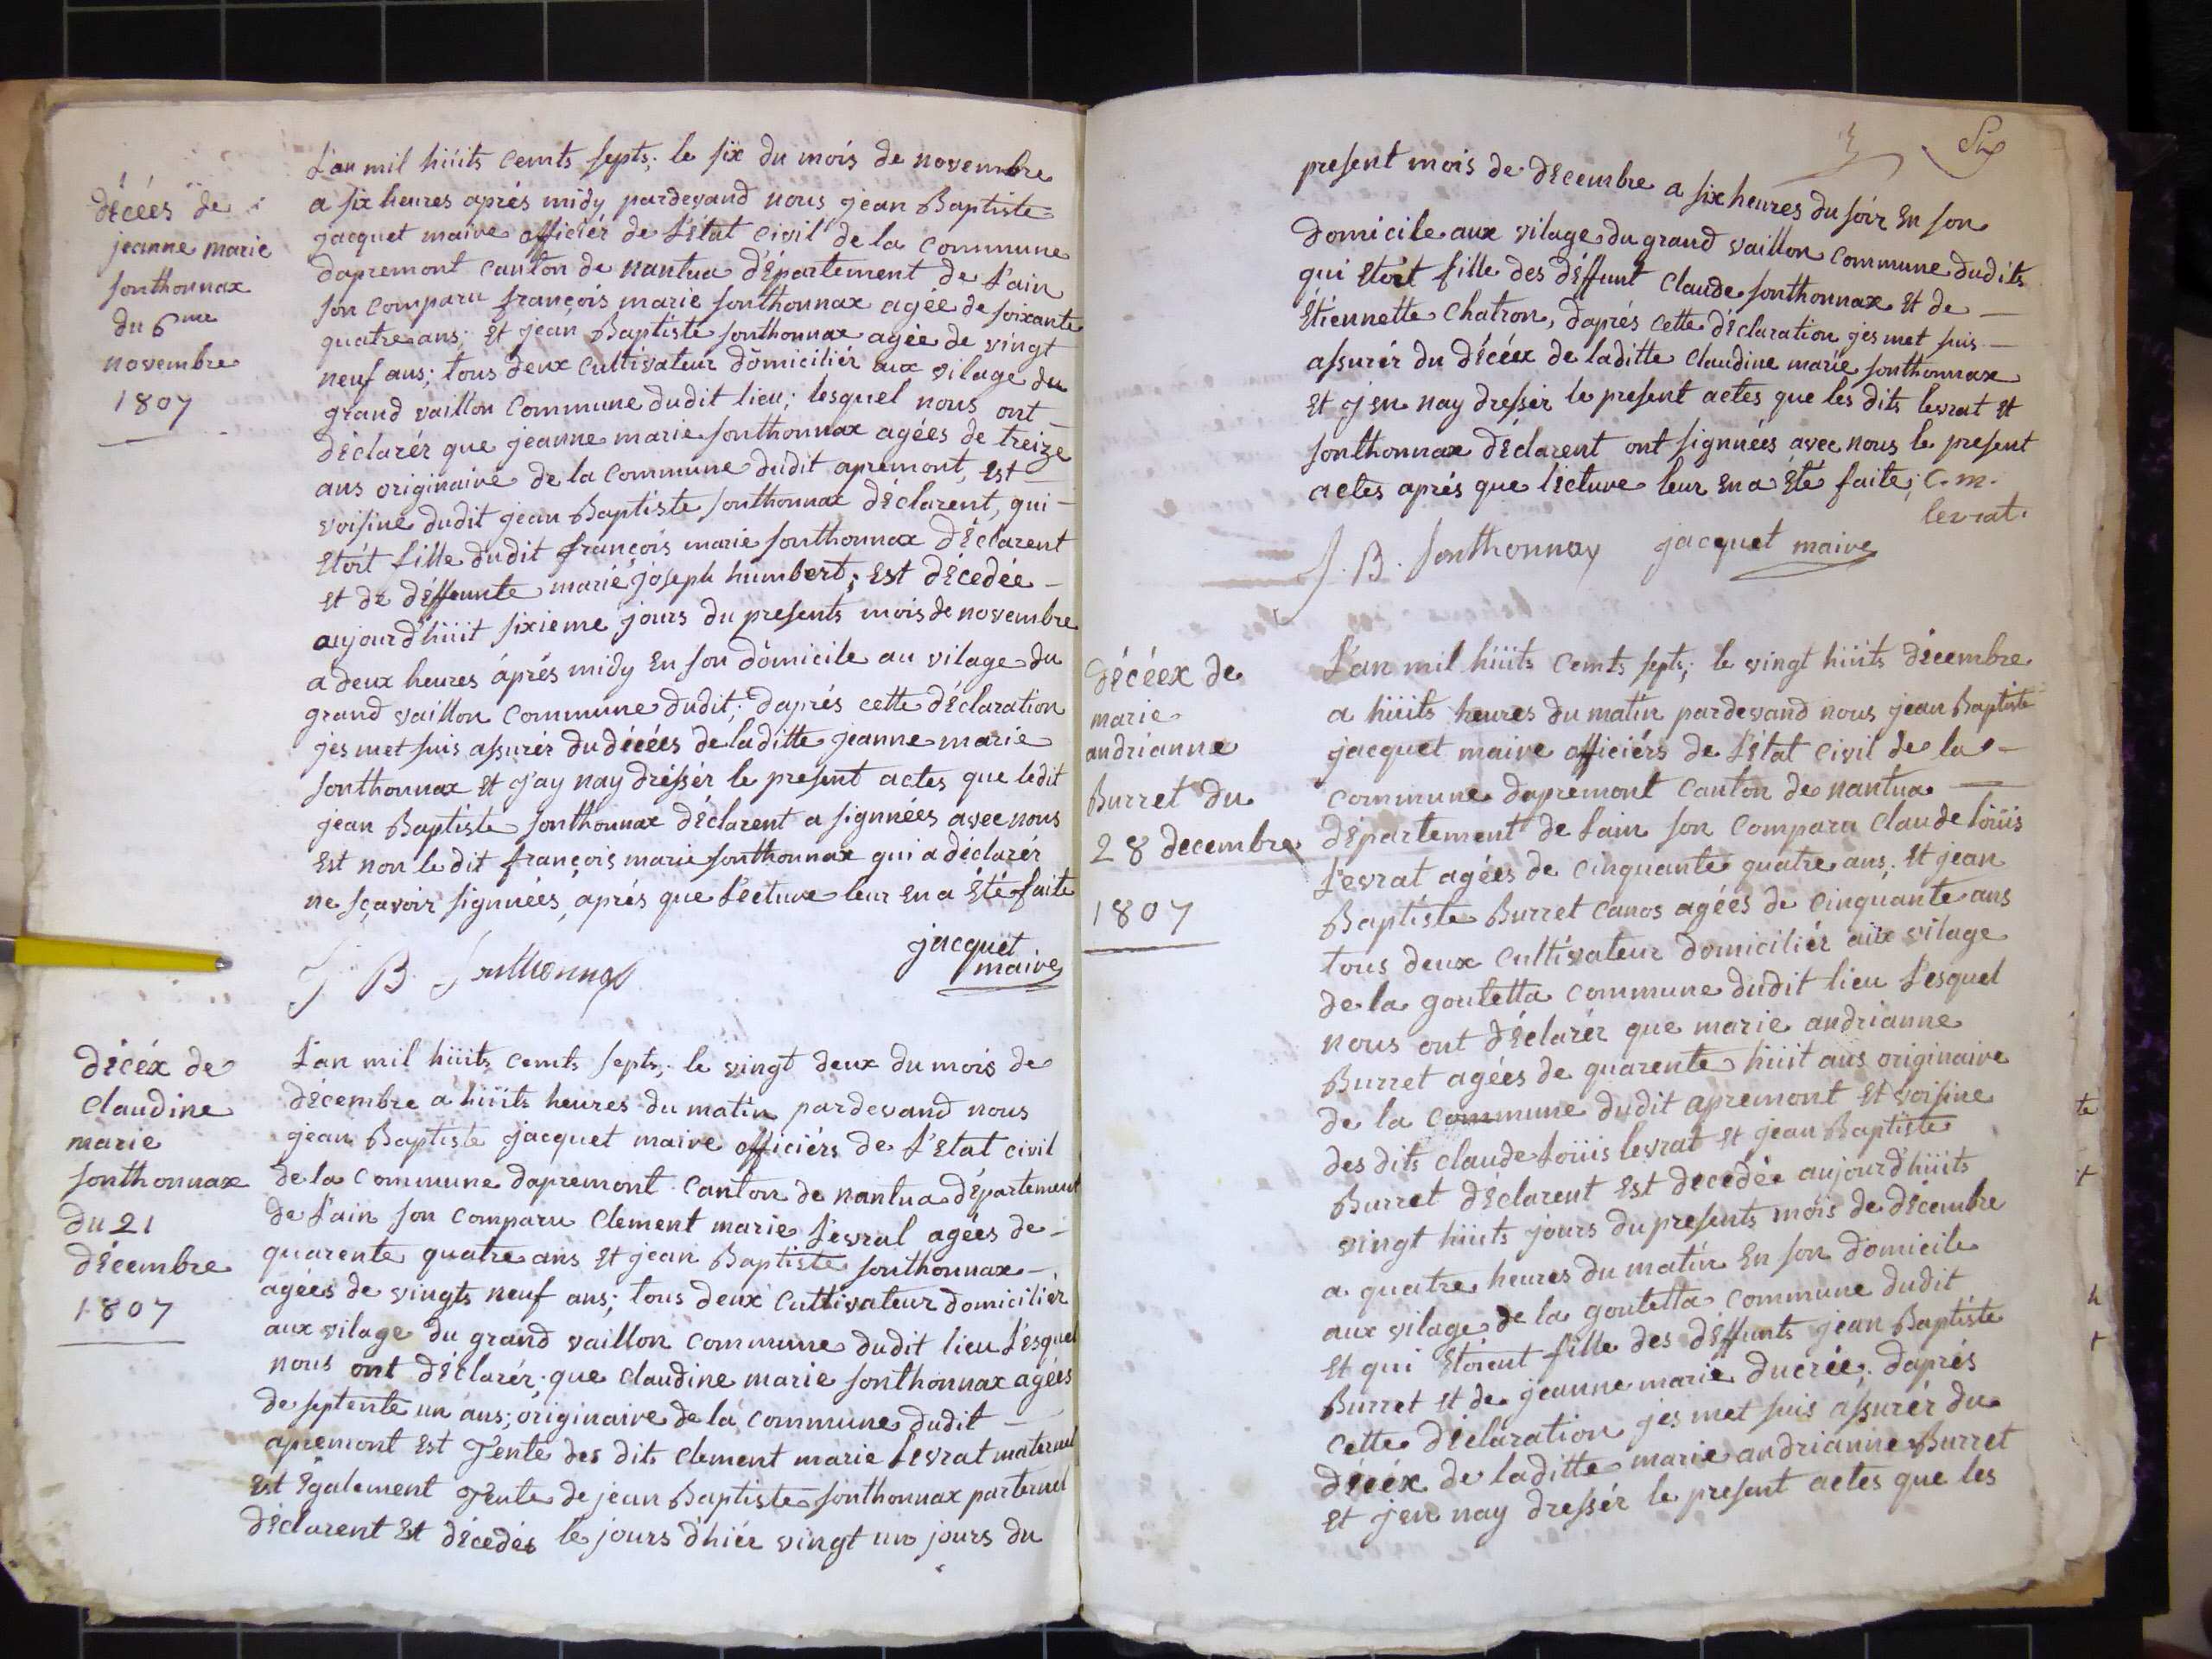 décées de
jeanne marie
sonthonnax
du 6me
novembre
1807
L'an mil hüits cemts septs; le six du mois de novembre
a six heures aprés midy pardevand nous jean Baptiste
jacquet maire officiér de L'état civil de la commune
dapremont canton de nantua département de L'ain
son comparu françois marie sonthonnax agée de soixante
quatre ans; et jean Baptiste sonthonnax agée de vingt
neuf ans; tous deux cultivateur domiciliér aux vilage du
grand vaillon commune dudit lieu; lesquel nous ont
déclarér que jeanne marie sonthonnax agées de treize
ans originaire de la commune dudit apremont, est
voisine dudit jean Baptiste sonthonnax déclarent, qui
étoit fille dudit françois marie sonthonnax déclarent
et de déffunte marie joseph humbert; est décedée
aujourd'hüit sixieme jours du presents mois de novembre
a deux heures áprés midy en son domicile au vilage du
grand vaillon commune dudit; daprés cette déclaration
jes met suis assurér du décées de laditte jeanne marie
sonthonnax et j'ay nay dréssér le present actes que ledit
jean Baptiste sonthonnax déclarent a signnées avec nous
est non le dit françois marie sonthonnax qui a déclarér
ne sçavoir signnées, aprés que lécture leur en a été faite
J. B. Sonthonnax
jacquet
maire
décéx de
claudine
marie
sonthonnax
du 21
décembre
1807
L'an mil hüits cemts septs; le vingt deux du mois de
décembre a hüits heures du matin pardevand nous
jean Baptiste jacquet maire officiérs de L'état civil
de la commune dapremont canton de nantua département
de L'ain son comparu clement marie Levrat agées de
quarente quatre ans et jean Baptiste sonthonnax
agées de vingts neuf ans; tous deux cultivateur domiciliér
aux vilage du grand vaillon commune dudit lieu L'esquel
nous ont déclarér; que claudine marie sonthonnax agées
de septente un ans; originaire de la commune dudit
apremont est Tente des dit clement marie Levrat maternel
est également Tente de jean Baptiste sonthonnax parternel
déclarent est décedés le jours d'hiér vingt un jours du
Six
present mois de decembre a six heures du soir en son
domicile aux vilage du grand vaillon commune dudits
qui étoit fille des déffunt claude sonthonnax et de
étiennette chatron, daprés cette déclaration jes met suis
assurér du décéex de laditte claudine marie sonthonnax
et j'en nay dressér le present actes que les dits levrat et
sonthonnax déclarent ont signnées avec nous le present
actes aprés que lécture leur en a été faite; C. m.
levrat.
J. B. Sonthonnax jacquet maire
décéex de
marie
andrianne
Burret du
28 decembre
1807
L'an mil hüits cemts septs; le vingt hüits décembre
a hüits heures du matin pardevand nous jean Baptiste
jacquet maire officiérs de L'état civil de la
commune dapremont canton de nantua
département de L'ain son comparu claude Loüis
Levrat agées de cinquante quatre ans; et jean
Baptiste Burret canos agées de cinquante ans
tous deux cultivateur domiciliér aüx vilage
de la goutetta commune dudit lieu L'esquel
nous ont déclarér que marie andrianne
Burret agées de quarente hüit ans originaire
de la commune dudit apremont et voisine
des dits claude Loüis levrat et jean Baptiste
Burret déclarent est decedée aujourd'hüits
vingt hüits jours du presents mois de décembre
a quatre heures du matin en son domicile
aux vilage de la goutetta commune dudit
et qui étoient fille des déffunts jean Baptiste
Burret et de jeanne marie ducrée; daprés
cette déclaration jes met suis assurér du
décéx de laditte marie andrianne Burret
et j'en nay dressér le present actes que les